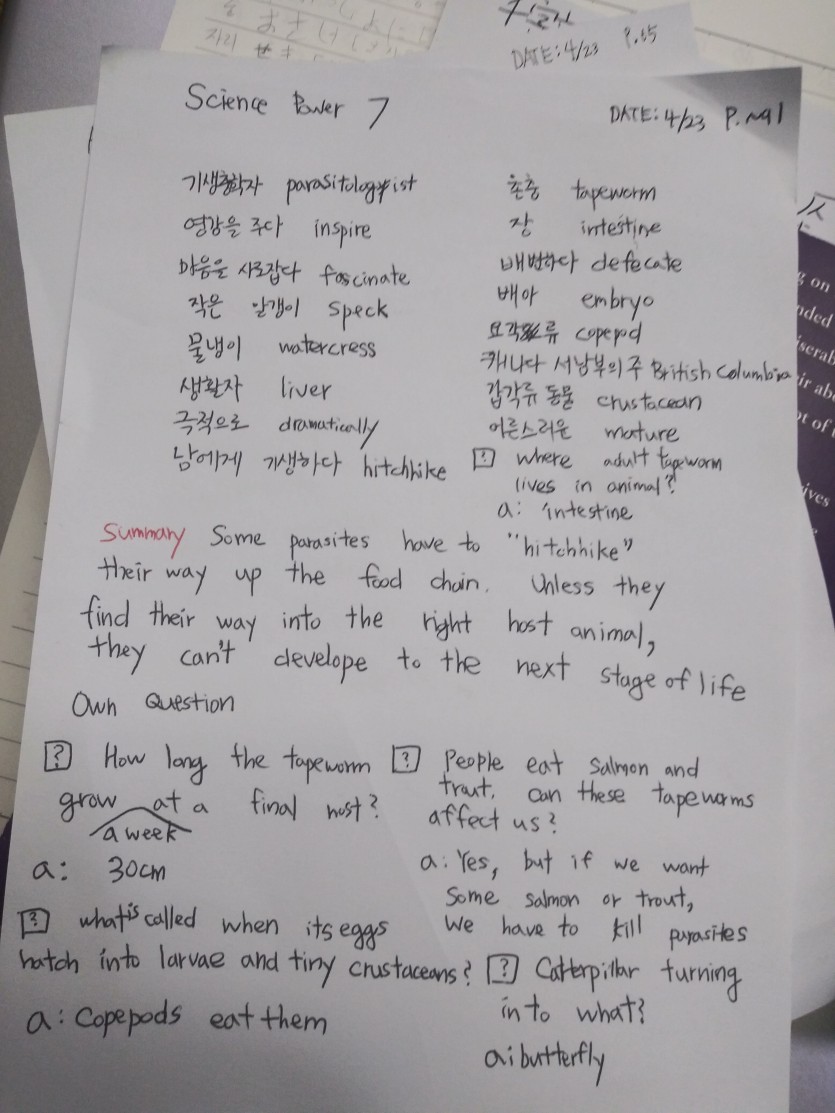 자리
DATE: 4/23 P.65
Science Power 7
DATE: 4/23 P.
기생충학자 parasitologist
영감을 주다 inspire
마음을 사로잡다 fascinate
작은 알갱이 speck
물냉이 watercress
생활자 liver
극적으로 dramatically
남에게 기생하다 hitchhike
촌충 tapeworm
장 intestine
배변하다 defecate
배아 embryo
요각류 copepod
캐나다 서남부의 주 British Columbia
갑각류 동물 crustacean
어른스러운 mature
? where adult tapeworm
lives in animal?
a: intestine
Summary Some parasites have to "hitchhike"
their way up the food chain. Unless they
find their way into the right host animal,
they can't develope to the next stage of life
Own Question
? How long the tapeworm
grow at a final host?
a week
a: 30cm
? what is called when its eggs
hatch into larvae and tiny crustaceans?
a: Copepods eat them
? People eat salmon and
traut. Can these tapeworms
affect us?
a: Yes, but if we want
some salmon or trout,
we have to kill parasites
? Catterpillar turning
in to what?
a: butterfly
on
nded
iserab
ir ab
ot of
ives